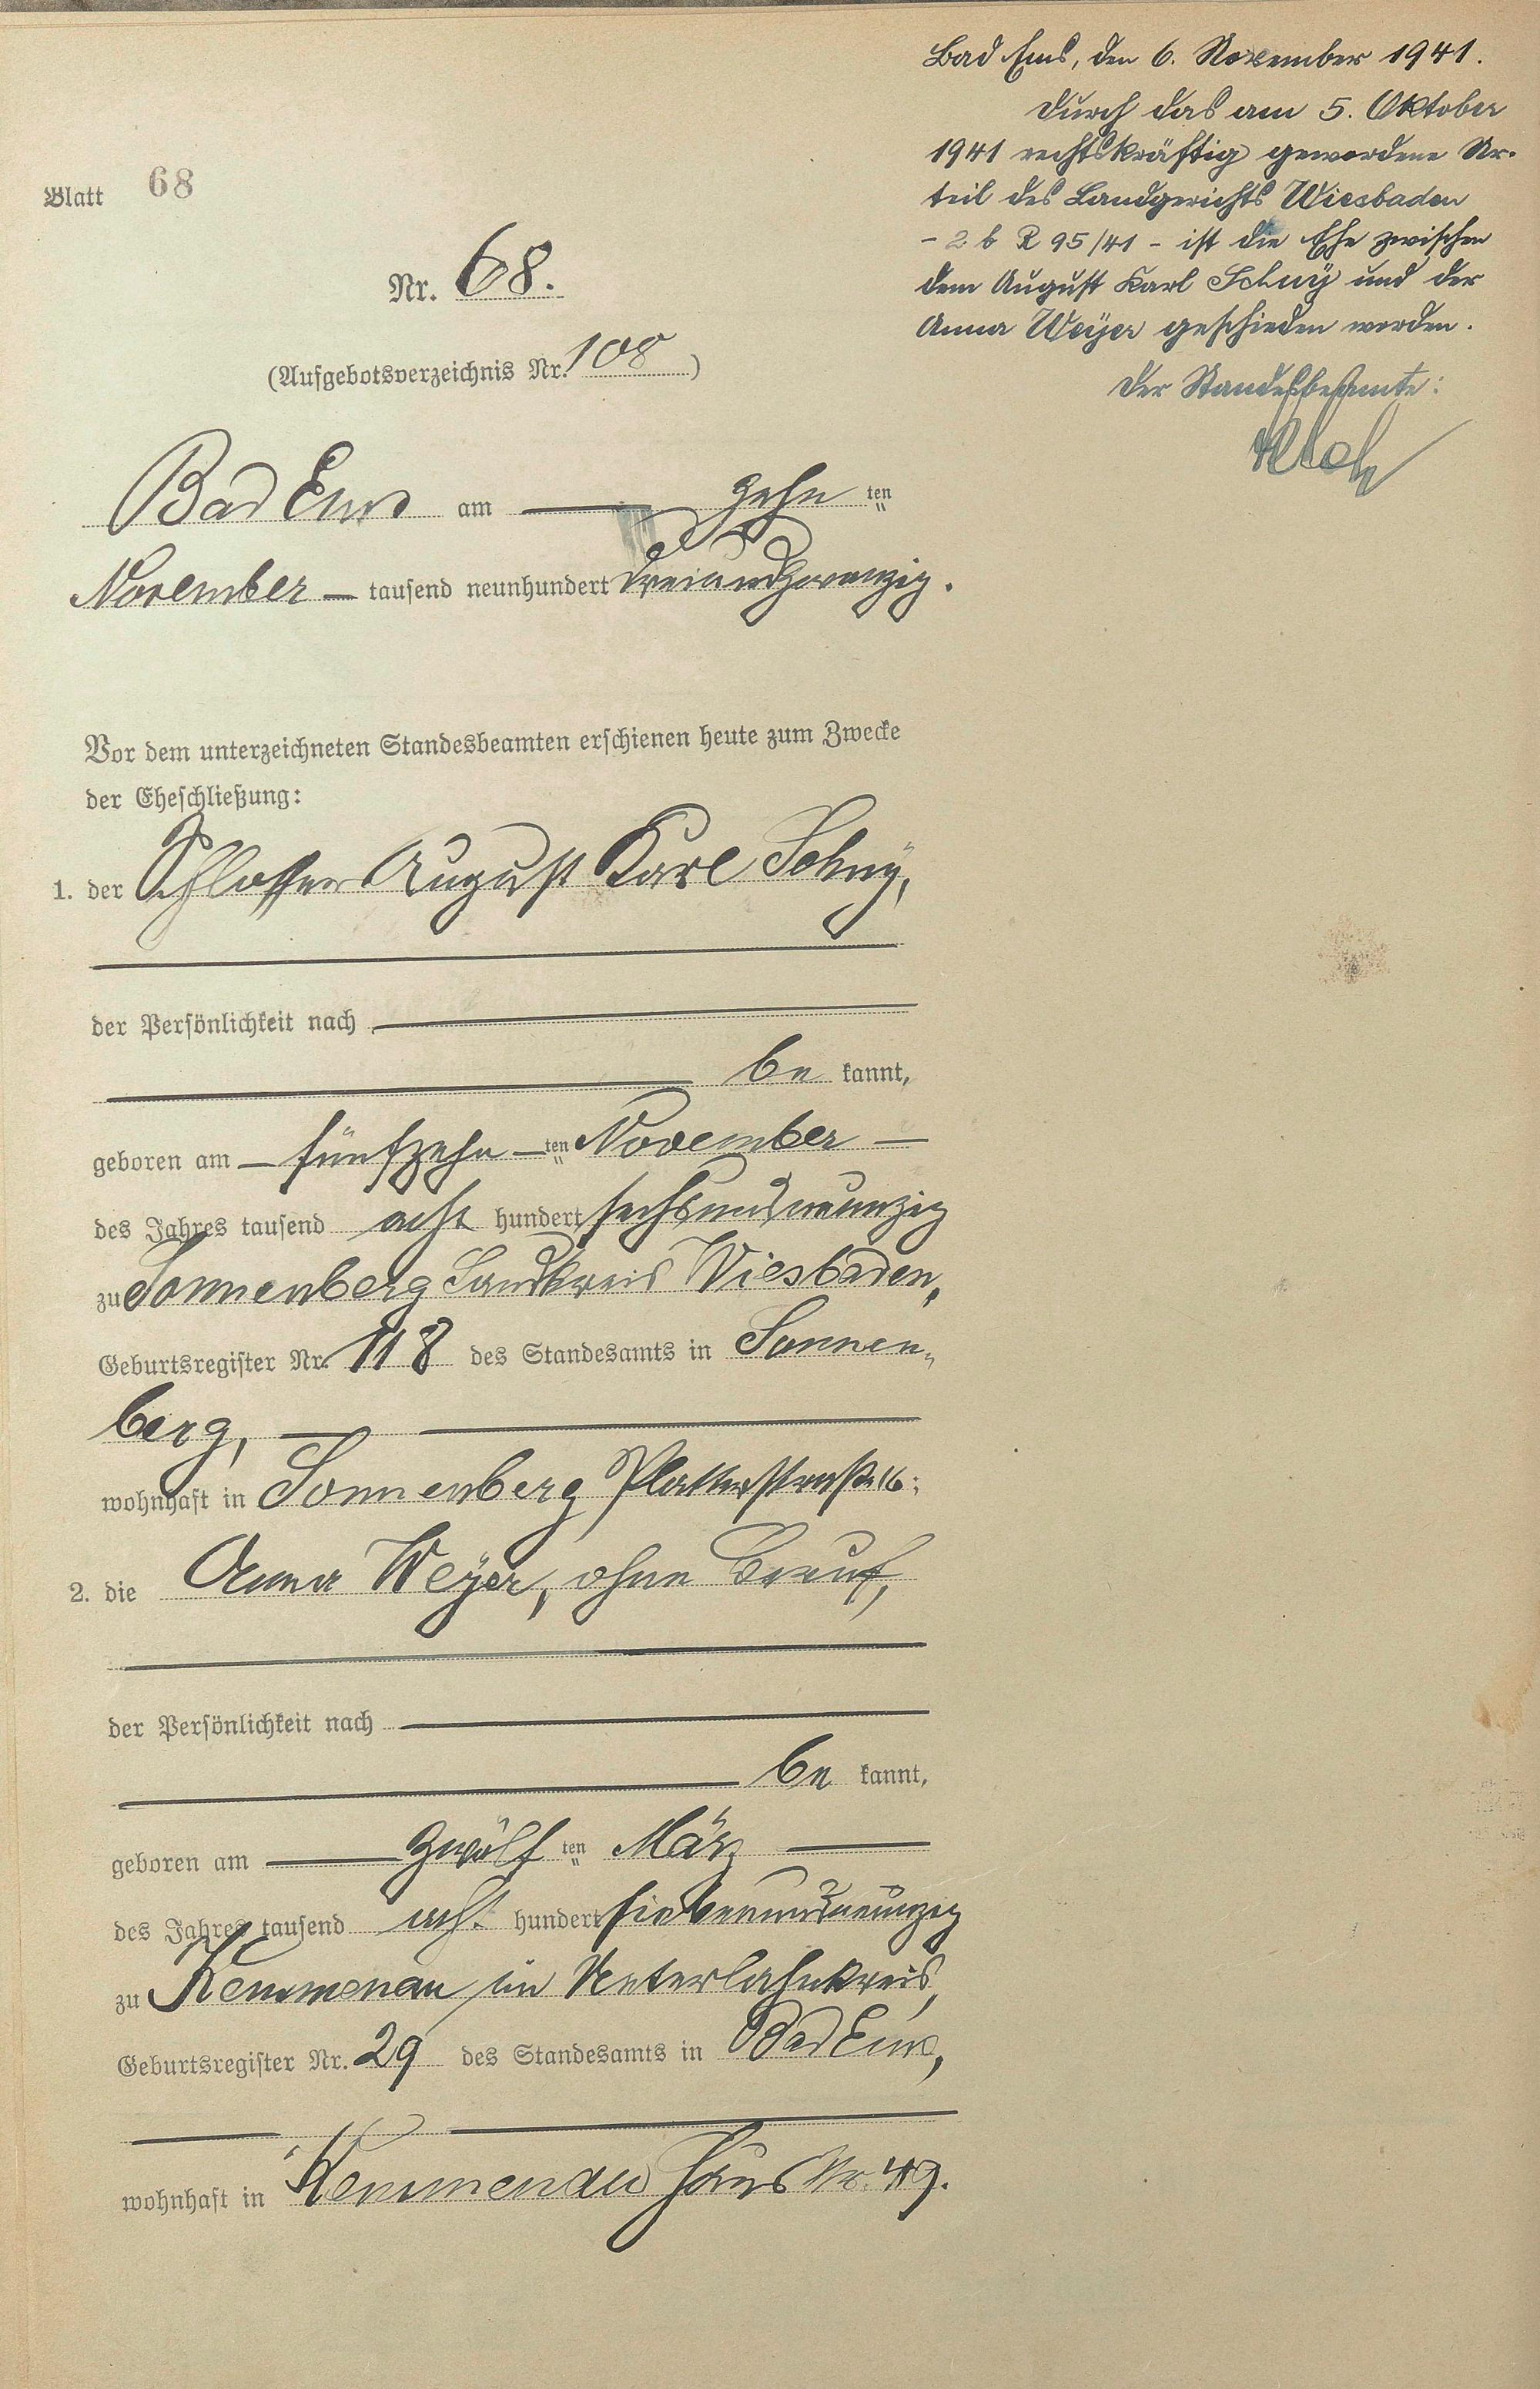 Blatt 68
Nr. 68.
(Aufgebotsverzeichnis Nr. 108)
Bad Ems am zehn ten
November — tausend neunhundert dreiundzwanzig.
Vor dem unterzeichneten Standesbeamten erschienen heute zum Zwecke
der Eheschließung:
1. der Schlosser August Karl Schuÿ,
der Persönlichkeit nach
be kannt,
geboren am — fünfzehn — ten November —
des Jahres tausend acht hundert sechsundneunzig
zu Sonnenberg Landkreis Wiesbaden,
Geburtsregister Nr. 118 des Standesamts in Sonnen„
berg,
wohnhaft in Sonnenberg Platterstraße 16;
2. die Anna Weÿer, ohne Beruf,
der Persönlichkeit nach
be kannt,
geboren am zwölf ten März
des Jahres tausend acht hundert siebenundneunzig
zu Kemmenau im Unterlahnkreis,
Geburtsregister Nr. 29 des Standesamts in Bad Ems,
wohnhaft in Kemmenau Haus Nr. 49.
Bad Ems, den 6. November 1941.
Durch das am 5. Oktober
1941 rechtskräftig gewordene Ur-
teil des Landgerichts Wiesbaden
- 2 b R 95/41 - ist die Ehe zwischen
dem August Karl Schuÿ und der
Anna Weÿer geschieden worden.
Der Standesbeamte: